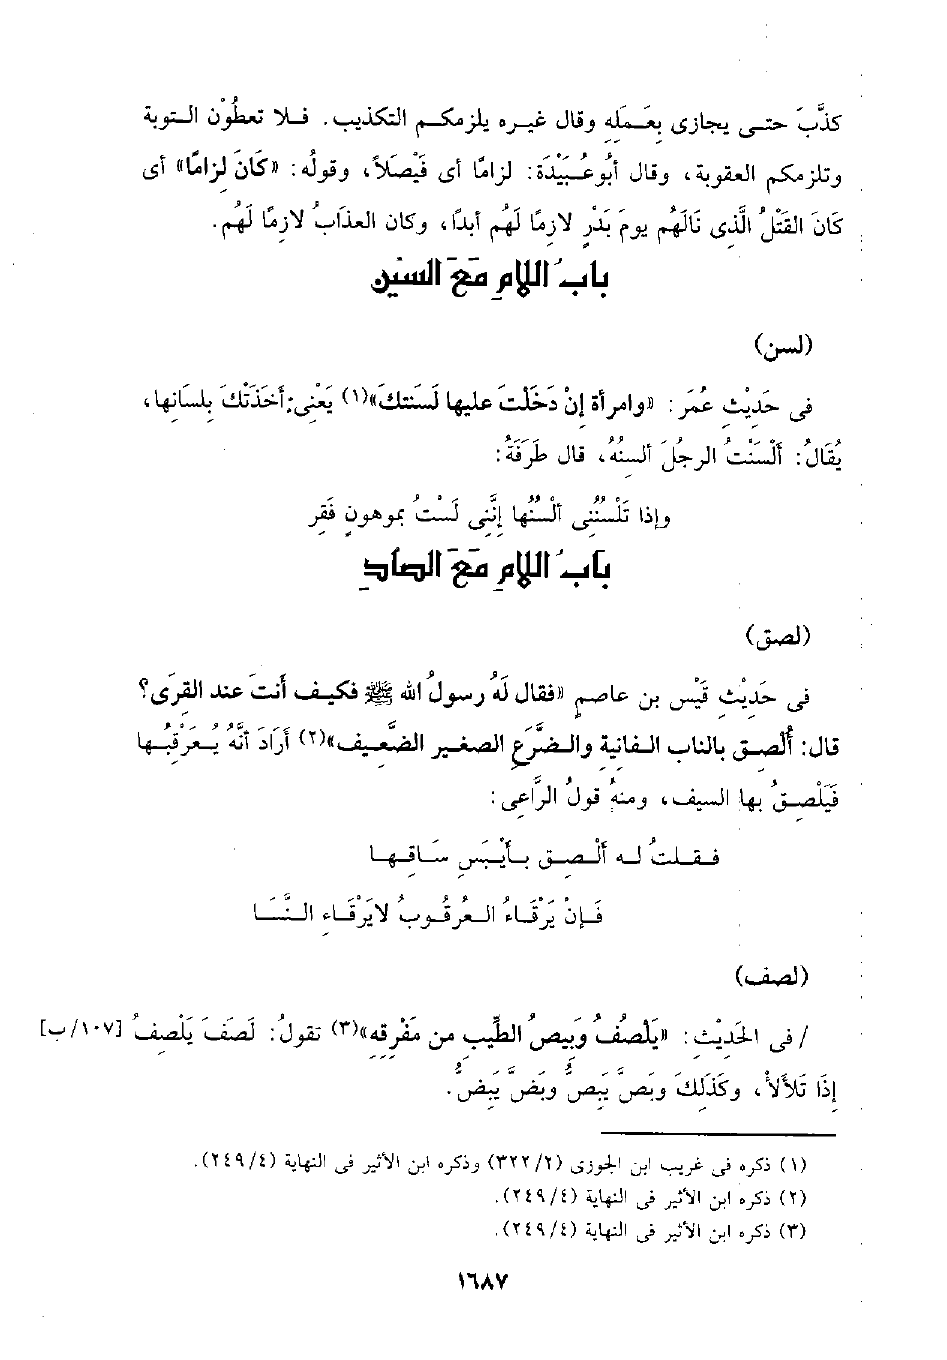 كذَّبَ حتى يجازى بِعَمَلِه وقال غيره يلزمكم التكذيب. فلا تعطُوْن التوبة
وتلزمكم العقوبة، وقال أبُو عُبَيْدَة: لزامًا أى فَيْصَلاً، وقولُه: «كَانَ لِزامًا» أى
كَانَ القَتْلُ الَّذِى نَالَهُم يومَ بَدْرٍ لازمًا لَهُم أبدًا، وكان العذابُ لازمًا لَهُم.
بابُ اللامِ مَعَ السين
(لسن)
فى حَدِيْثِ عُمَر: «وامرأة إنْ دَخَلْتَ عليها لَسَنتكَ»(١) يَعْنِى: أخَذَتْكَ بِلسَانِها،
يُقَالُ: ألْسَنْتُ الرجُلَ ألسِنُهُ، قال طَرَفَةُ:
وإذا تَلْسُنُنِى ألْسُنُها إنَّنِى لَسْتُ بموهونٍ فَقِر
بَابُ اللامِ مَعَ الصَادِ
(لصق)
فى حَدِيْثِ قَيْس بن عاصمٍ «فقال لَهُ رسولُ الله ﷺ فكيف أنتَ عند القرَى؟
قال: أُلصِق بالناب الفانية والضَّرَعِ الصغير الضَّعِيف»(٢) أرَادَ أنَّهُ يُعَرْقِبُها
فَيَلْصِقُ بها السيف، ومنهُ قولُ الرَّاعِى:
فقلتُ له ألْصِق بأيْبَسِ سَاقِها
فَإنْ يَرْقَاءُ العُرقُوبُ لايَرْقَاءِ النَّسَا
(لصف)
/ فى الحَدِيْثِ: «يَلصُفُ وَبيصُ الطِّيب من مَفْرِقِه»(٣) تقولُ: لَصَفَ يَلْصِفُ [١٠٧/ب]
إذَا تَلألأ، وكَذَلِكَ وبَصَّ يَبِصُّ وبَضَّ يَبِضُّ.
(١) ذكره فى غريب ابن الجوزى (٣٢٢/٢) وذكره ابن الأثير فى النهاية (٢٤٩/٤).
(٢) ذكره ابن الأثير فى النهاية (٢٤٩/٤).
(٣) ذكره ابن الأثير فى النهاية (٢٤٩/٤).
١٦٨٧